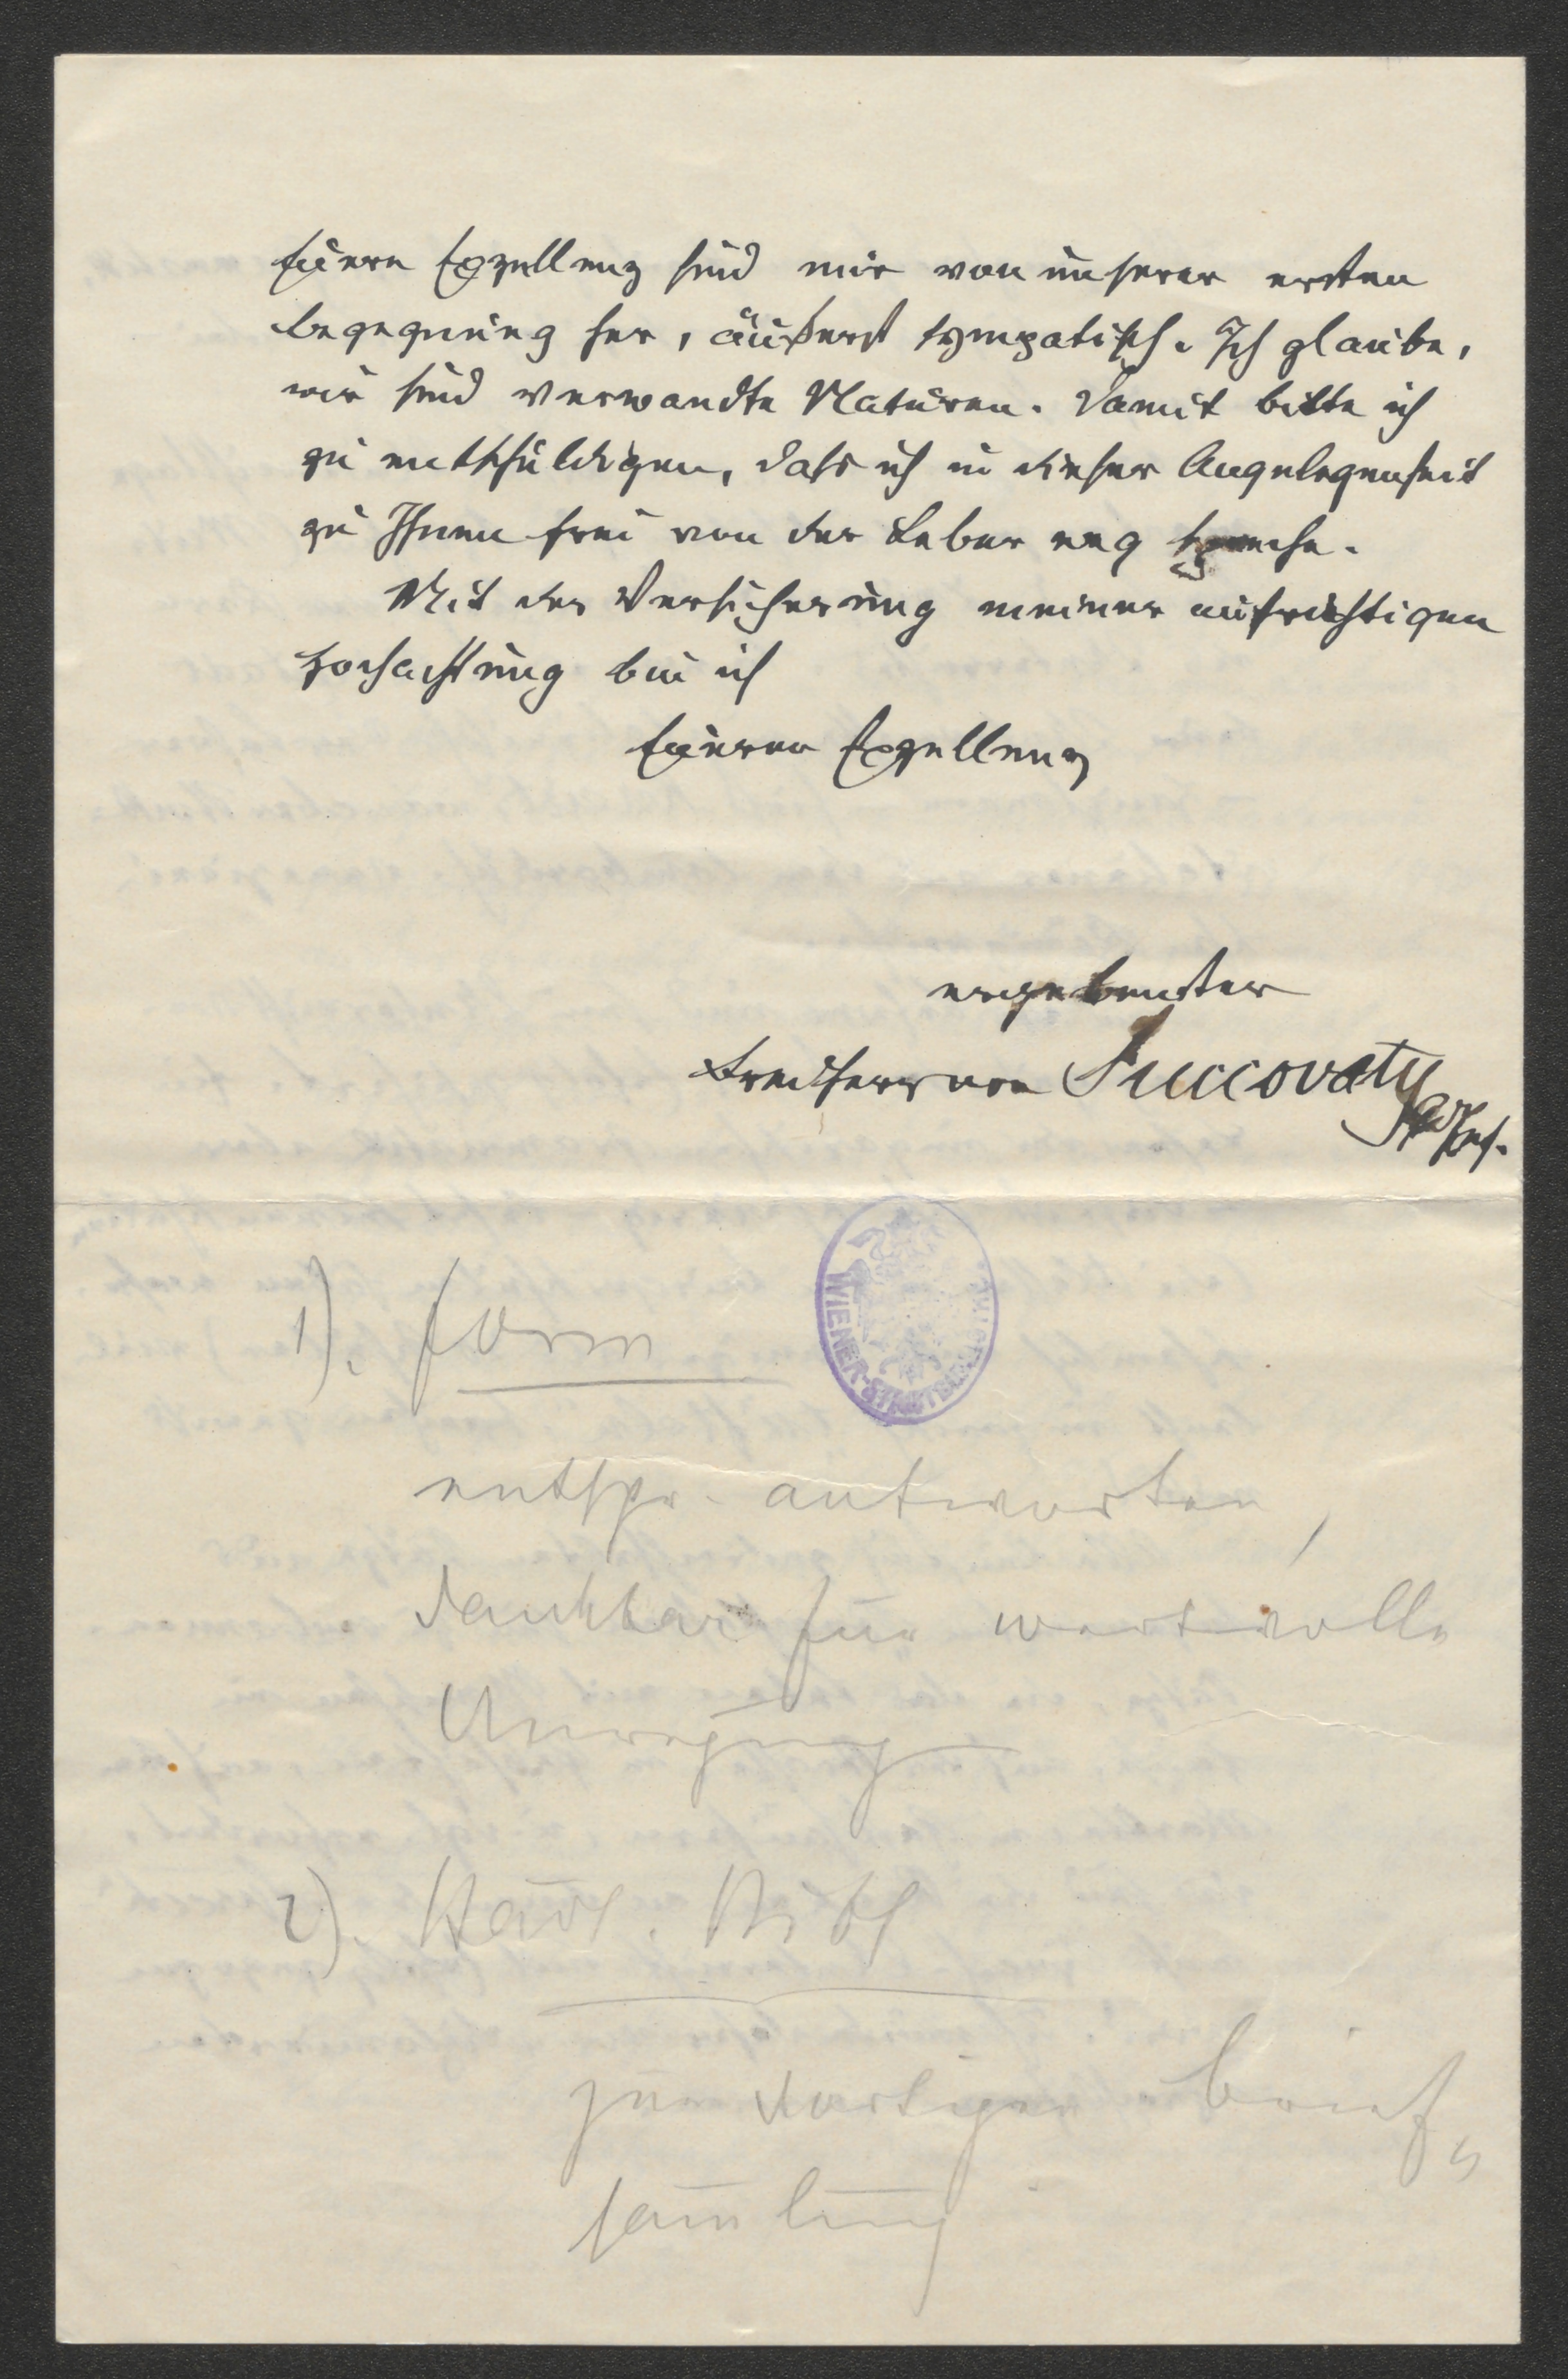 Euere Exzellenz sind mir von unserer ersten
Begegnung her, äußerst sympatisch. Ich glaube,
wir sind verwandte Naturen. Damit bitte ich
zu entschuldigen, dass ich in dieser Angelegenheit
zu Ihnen frei von der Leber weg spreche.
Mit der Versicherung meiner aufrichtigen
Hochachtung bin ich
Euerer Exzellenz
ergebenster
Freiherr von Succovaty
1). Form
entspr. antworten,
dankbar für wertvolle
Anregung
2).
zur dortigen Brief
samlung
WIENER STADTBIBLIOTHEK